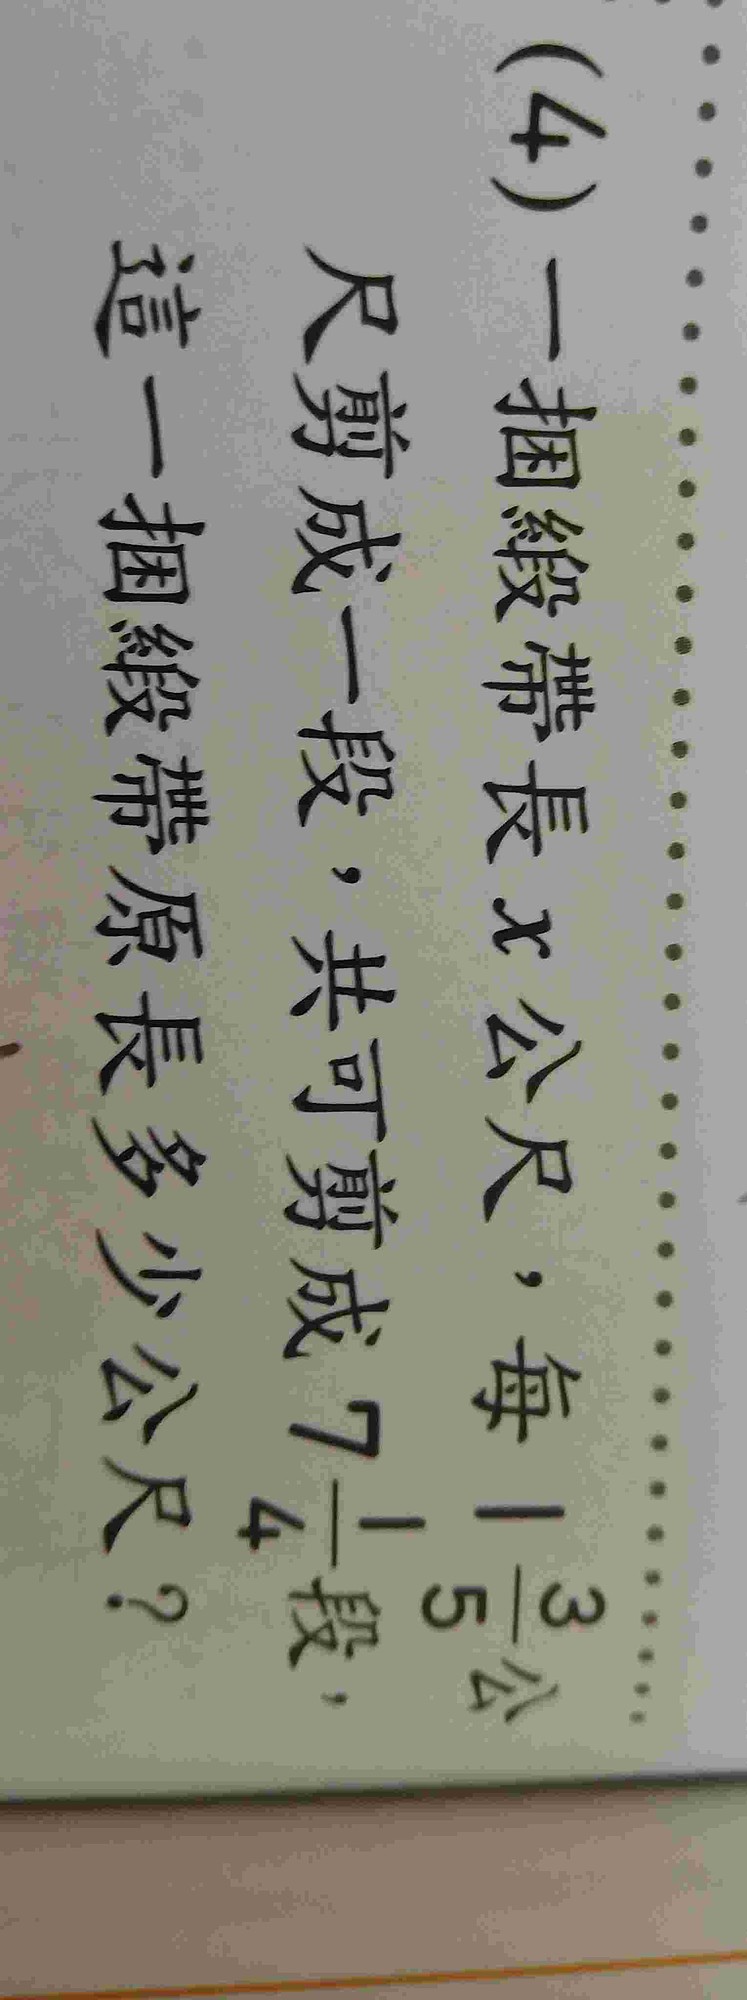 (4) 一捆緞帶長 x 公尺，每 1 3/5 公
尺剪成一段，共可剪成 7 1/4 段，
這一捆緞帶原長多少公尺？